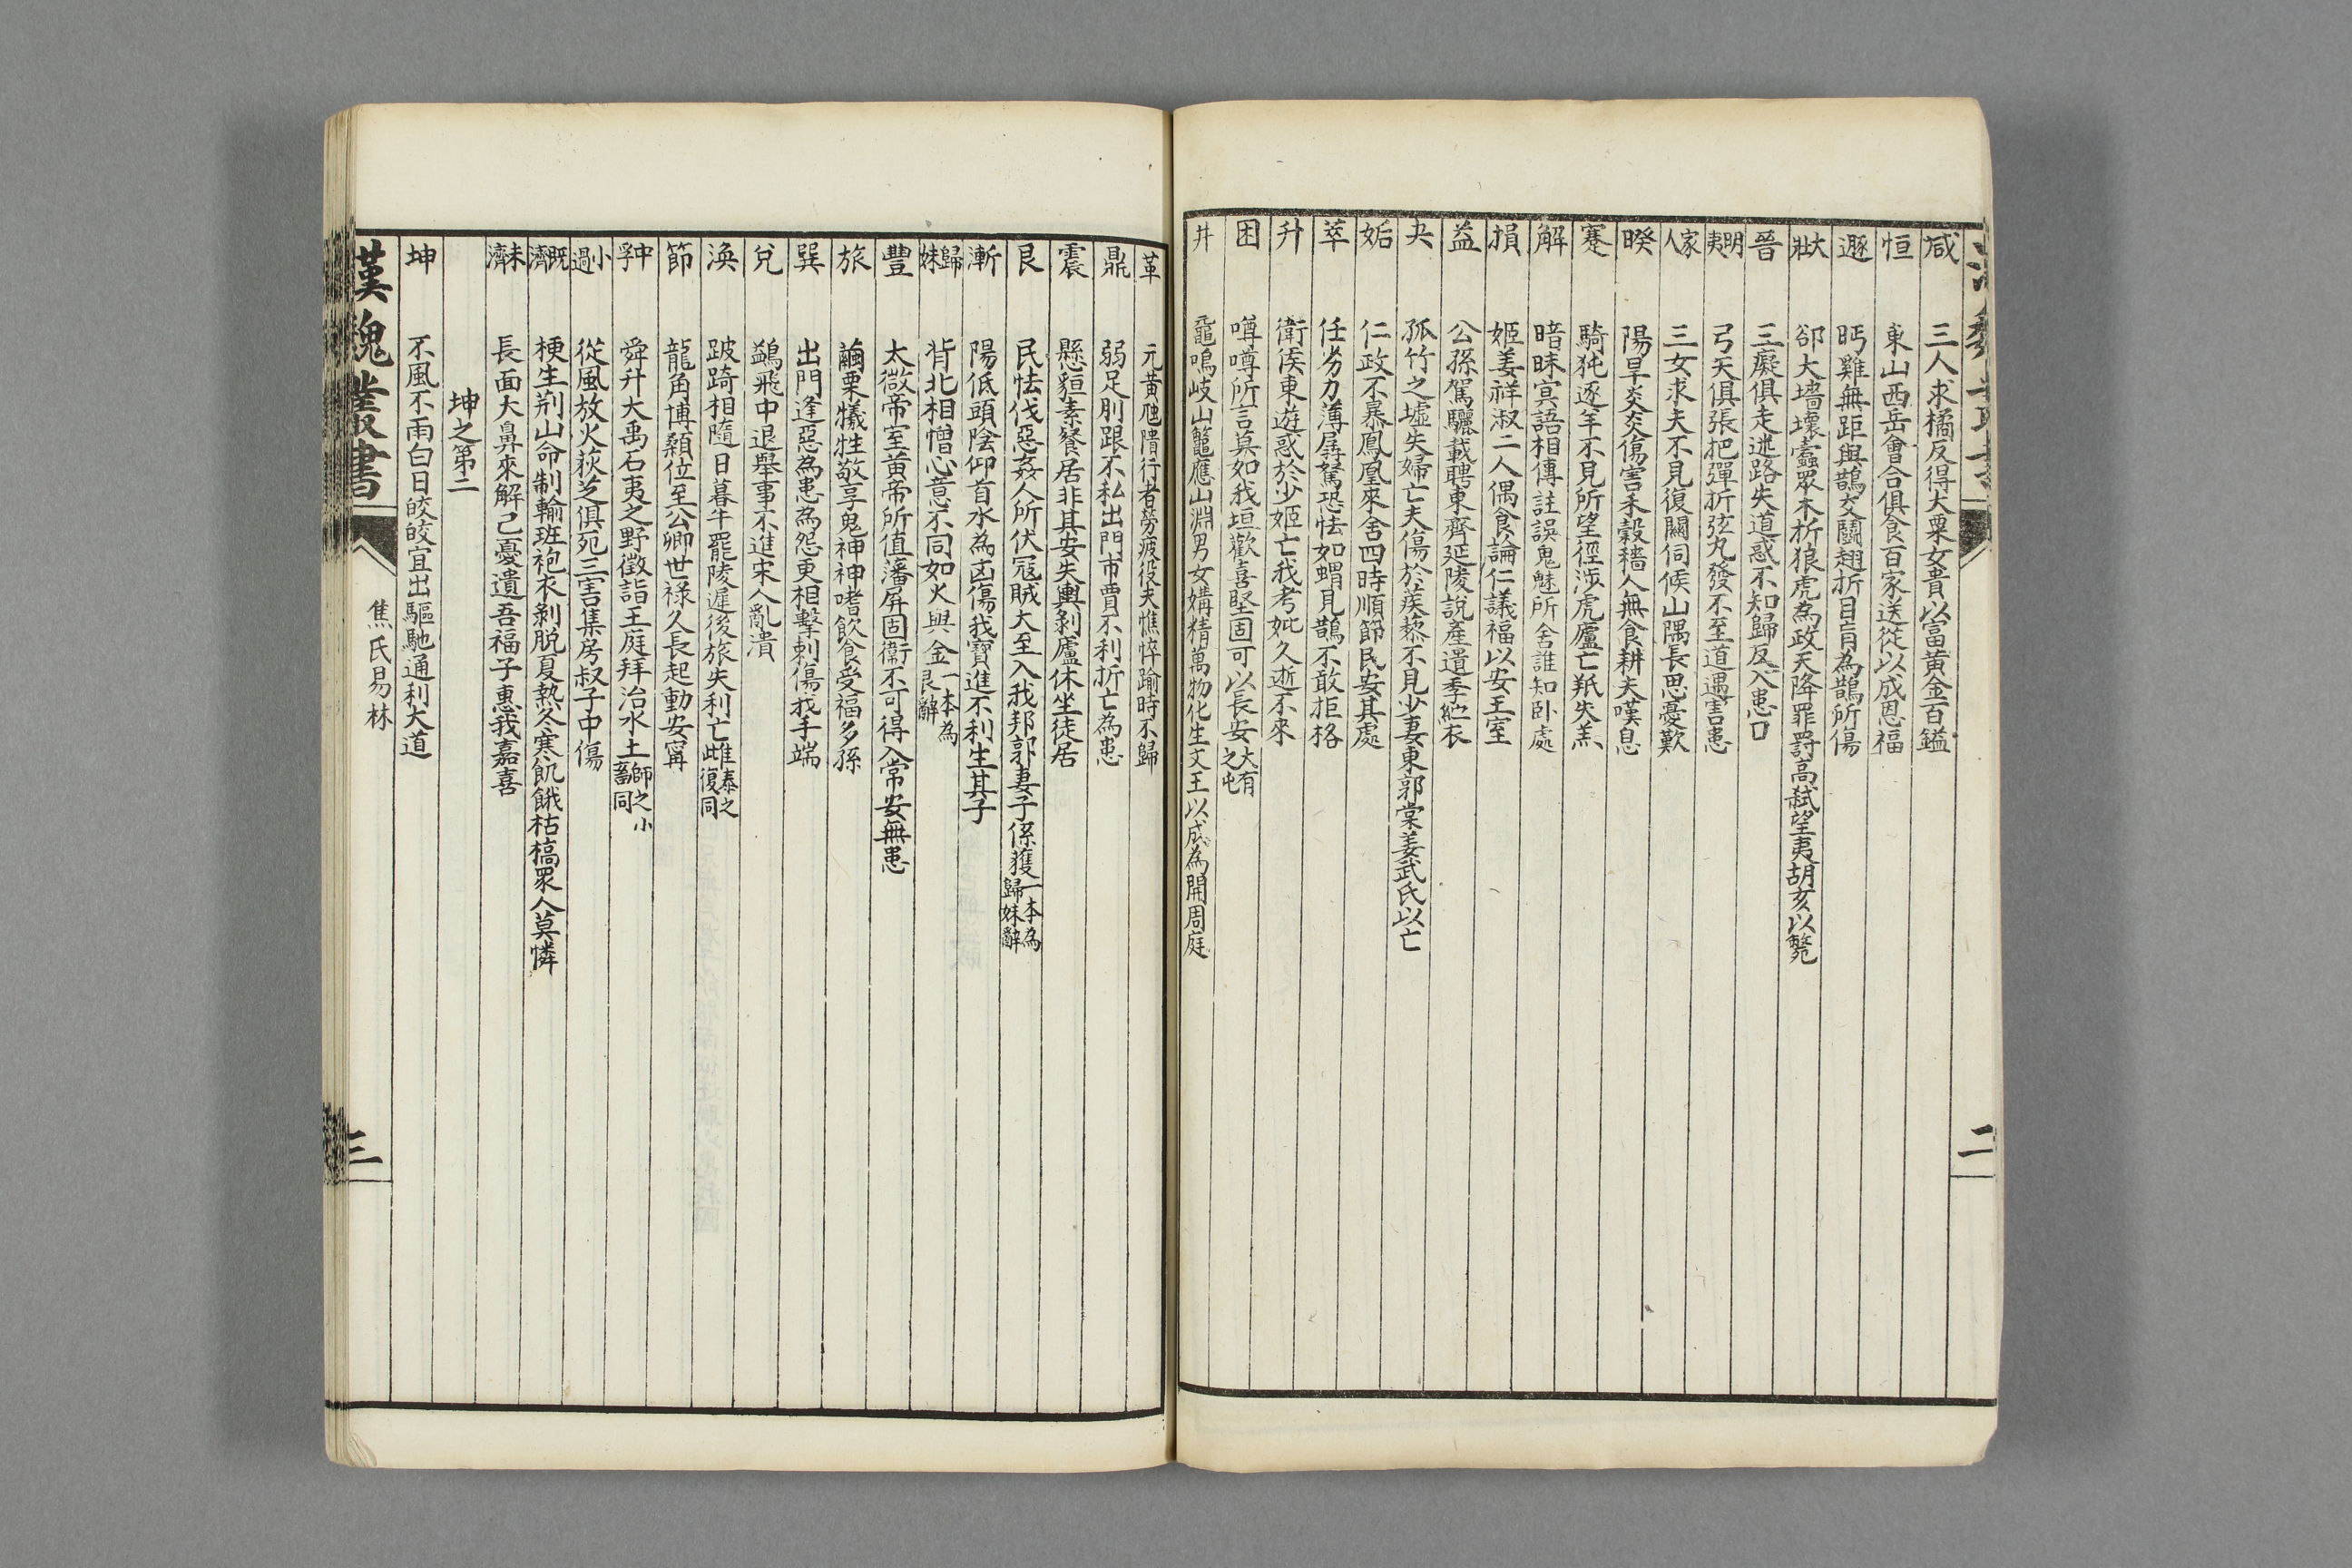 咸　三人求橘反得大栗女貴以富黃金百鎰
恒　東山西岳會合俱食百家送從以成恩福
遯　眄雞無距與鵲交鬬翅折目盲為鵲所傷
大壯　郤大墻壞蠹眾木折狼虎為政天降罪罸高弑望夷胡亥以斃
晉　三癡俱走迷路失道惑不知歸反入患口
明夷　弓矢俱張把彈折弦丸發不至道遇害患
家人　三女求夫不見復關伺候山隅長思憂歎
睽　陽旱炎炎傷害禾穀穡人無食耕夫嘆息
蹇　騎㹠逐羊不見所望徑涉虎廬亡羝失羔
解　暗昧冥語相傳詿誤鬼魅所舍誰知卧處
損　姬姜祥淑二人偶食論仁議福以安王室
益　公孫駕驪載聘東齊延陵說產遺季紵衣
夬　孤竹之墟失婦亡夫傷於蒺藜不見少妻東郭棠姜武氏以亡
姤　仁政不暴鳳凰來舍四時順節民安其處
萃　任劣力薄孱駑恐怯如蝟見鵲不敢拒格
升　衛侯東遊惑於少姬亡我考妣久逝不來
困　噂噂所言莫如我垣歡喜堅固可以長安大有之屯
井　黿鳴岐山鼈應山淵男女媾精萬物化生文王以成為開周庭
二
革　元黃虺隤行者勞疲役夫憔悴踰時不歸
鼎　弱足刖跟不私出門市賈不利折亡為患
震　懸貆素餐居非其安失輿剝廬休坐徒居
艮　民怯伐惡姦人所伏寇賊大至入我邦郭妻子係獲一本為歸妹辭
漸　陽低頭陰仰首水為凶傷我寶進不利生其子
歸妹　背北相憎心意不同如火與金一本為艮辭
豐　太微帝室黃帝所值藩屏固衛不可得入常安無患
旅　繭栗犧牲敬享鬼神神嗜飲食受福多孫
巽　出門逢惡為患為怨更相擊刺傷我手端
兌　鷁飛中退舉事不進宋人亂潰
渙　跛踦相隨日暮牛罷陵遲後旅失利亡雌泰之復同
節　龍角博顙位至公卿世祿久長起動安寗
中孚　舜升大禹石夷之野徵詣王庭拜治水土師之小畜同
小過　從風放火荻芝俱死三害集房叔子中傷
既濟　梗生荆山命制輸班袍衣剝脫夏熱冬寒飢餓枯槁眾人莫憐
未濟　長面大鼻來解己憂遺吾福子惠我嘉喜
坤之第二
坤　不風不雨白日皎皎宜出驅馳通利大道
漢魏叢書　焦氏易林　三